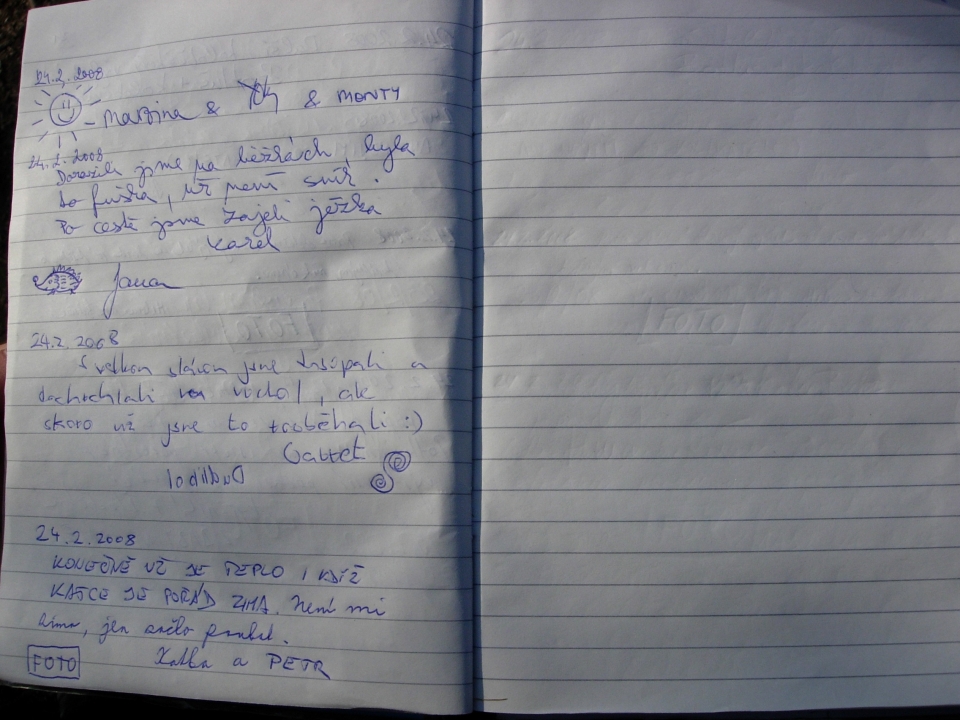 24.2.2008
Martina & & MONTY
24.2.2008
Dorazili jsme na běžkách, byla
to fuška, už není sníh.
Po cestě jsme zajeli ježka
Karel
Jana
24.2.2008
S velkou slávou jsme
na vrchol, ale
skoro už jsme to proběhali :)
24.2.2008
KONEČNĚ UŽ JE TEPLO I KDIŽ
KATCE JE POŘÁD ZIMA. Není mi
zima, jen
FOTO Katka a PETR